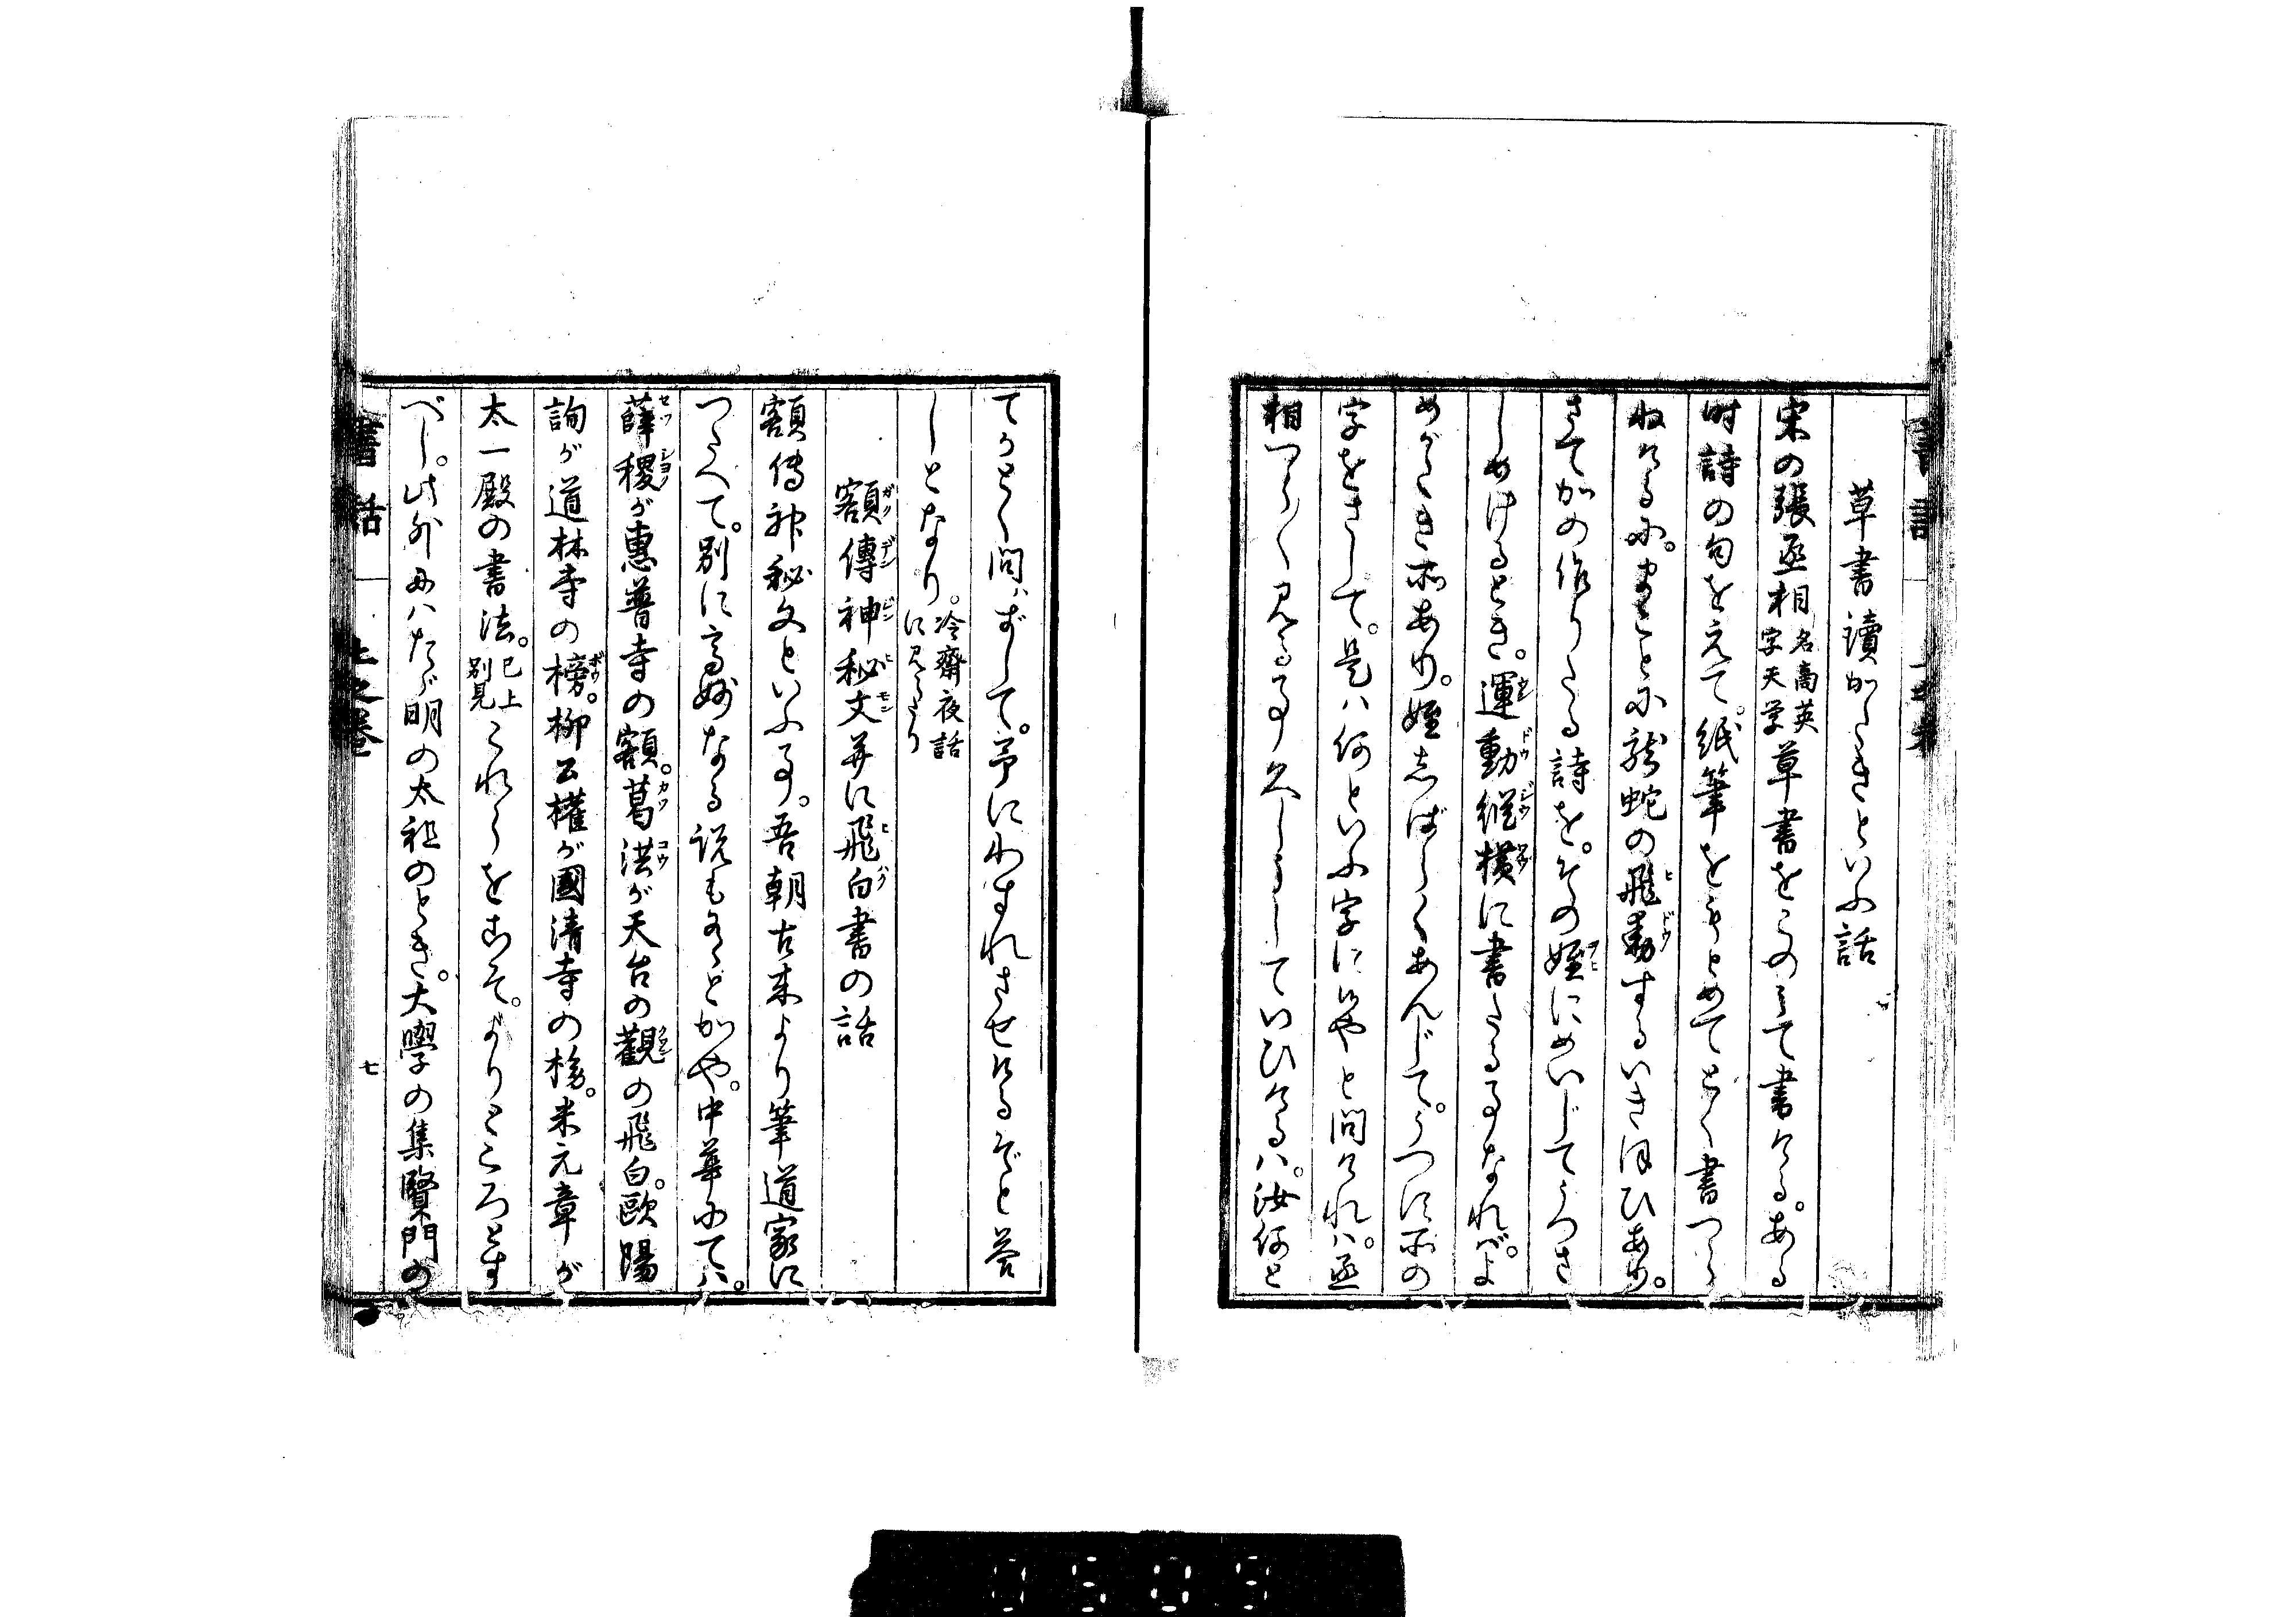 草書讀がたきといふ話
宋の張丞相 名商英 字天学 草書をこのミて書ける。ある
時詩の句をえて。紙筆をもとめてとく書つら
ねけるに。まことに龍蛇の飛動するいきほひあり。
さてかの作りたる詩を。その姪にめいじてうつさ
しめけるとき。運動縦横に書たる事なれバ。よ
めがたき所あり。姪志ばらくあんじて。うつに所の
字をさして。是ハ何といふ字にやと問けれハ。丞
相つら〱見る事久しうしていひけるハ。汝何と
てうとく問ハずして。予にわすれさせけるぞと答
しとなり。 冷齋夜話 に見えたり
額傳神秘文并に飛白書の話
額傳神秘文といふ事。吾朝古来より筆道家に
つたへて。別に高妙なる説もあるとかや。中華にてハ。
薛稷が惠普寺の額。葛洪が天台の觀の飛白。歐陽
詢が道林寺の榜。柳公權が國清寺の榜。米元章が
太一殿の書法。 已上 別見 これらをこそ。よりところとす
べし。此外にハたゞ明の太祖のとき。大學の集賢門の
書話 上之巻 七